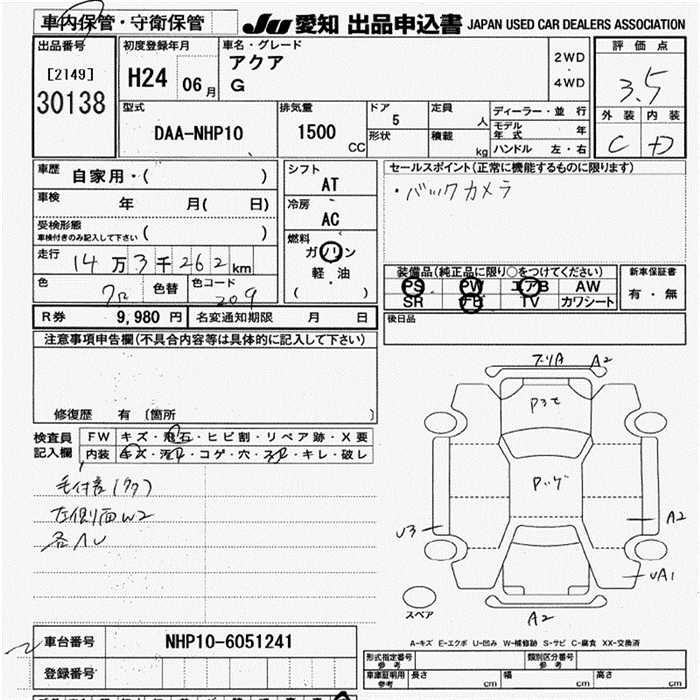 車内保管・守衛保管
JU 愛知 出品申込書 JAPAN USED CAR DEALERS ASSOCIATION
出品番号
[2149]
30138
初度登録年月
H24 06月
車名・グレード
アクア
G
2WD
・
4WD
評価点
3.5
外装 内装
C +D
型式
DAA-NHP10
排気量
1500
CC
ドア
5
形状
定員
人
積載
kg
ディーラー・並行
モデル年式 年
ハンドル 左・右
車歴
自家用・( )
車検
年 月( 日)
受検形態
車検付きのみ記入して下さい ( )
走行
14万3千262km
色
色替
色コード
209
シフト
AT
冷房
AC
燃料
ガソリン
軽・油
( )
セールスポイント(正常に機能するものに限ります)
・バックカメラ
装備品(純正品に限り○をつけてください)
PS PW エアB AW
SR TV カワシート
新車保証書
有・無
後日品
R券 9,980 円 名変通知期限 月 日
注意事項申告欄(不具合内容等は具体的に記入して下さい)
修復歴 有 〔箇所 〕
検査員
記入欄
FW キズ・飛石・ヒビ割・リペア跡・X要
内装 キズ・汚レ・コゲ・穴・スレ・キレ・破レ
左側面W2
各AU
A2
Pッゲ
A2
U3
UA1
A2
スペア
A-キズ E-エクボ U-凹み W-補修跡 S-サビ C-腐食 XX-交換済
車台番号 NHP10-6051241
登録番号
形式指定番号
参考
類別区分番号
参考
車庫証明用
参考
長さ cm 幅 cm 高さ cm